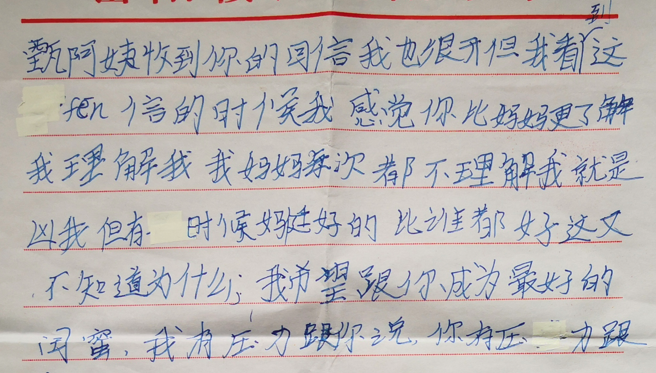 到
甄阿姨收到你的回信我也很开但我看这
fēn信的时候我感觉你比妈妈更了解
我理解我我妈妈每次都不理解我就是
凶我但有时候妈挺好的比谁都好这又
不知道为什么;我希望跟你成为最好的
闺蜜,我有压力跟你说,你有压力跟